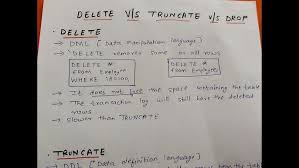 DELETE V/S TRUNCATE V/S DROP
• DELETE
→ DML [Data Manipulation Language]
→ DELETE removes some or all rows
DELETE *
From Employee
WHERE
DELETE *
From Employee;
→ It does not free the space containing the table
→ The transaction log will still have the deleted
rows
→ Slower than TRUNCATE
TRUNCATE
→ DDL [Data definition language]